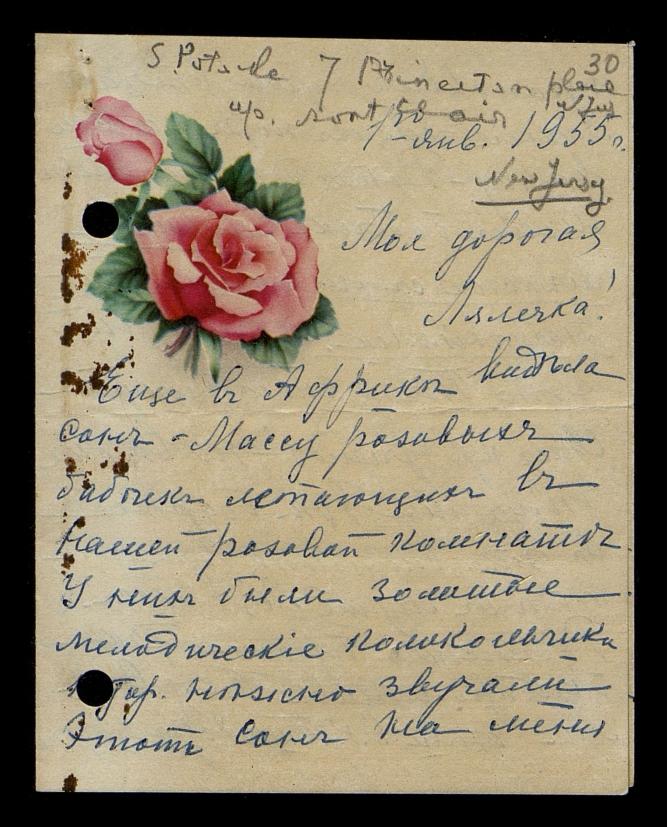 30
S. Pots 7 Princeton place
up. Montclair N. Jersy
1го янв. 1955 г.
New Jersy
Моя дорогая
Лялечка!
Еще въ Африкѣ видѣла
сонъ - Массу розовыхъ
бабочекъ летающихъ въ
нашей розовой комнатѣ.
У нихъ были золотые
мелодическіе колокольчики
нѣжно звучали
Этотъ сонъ на меня